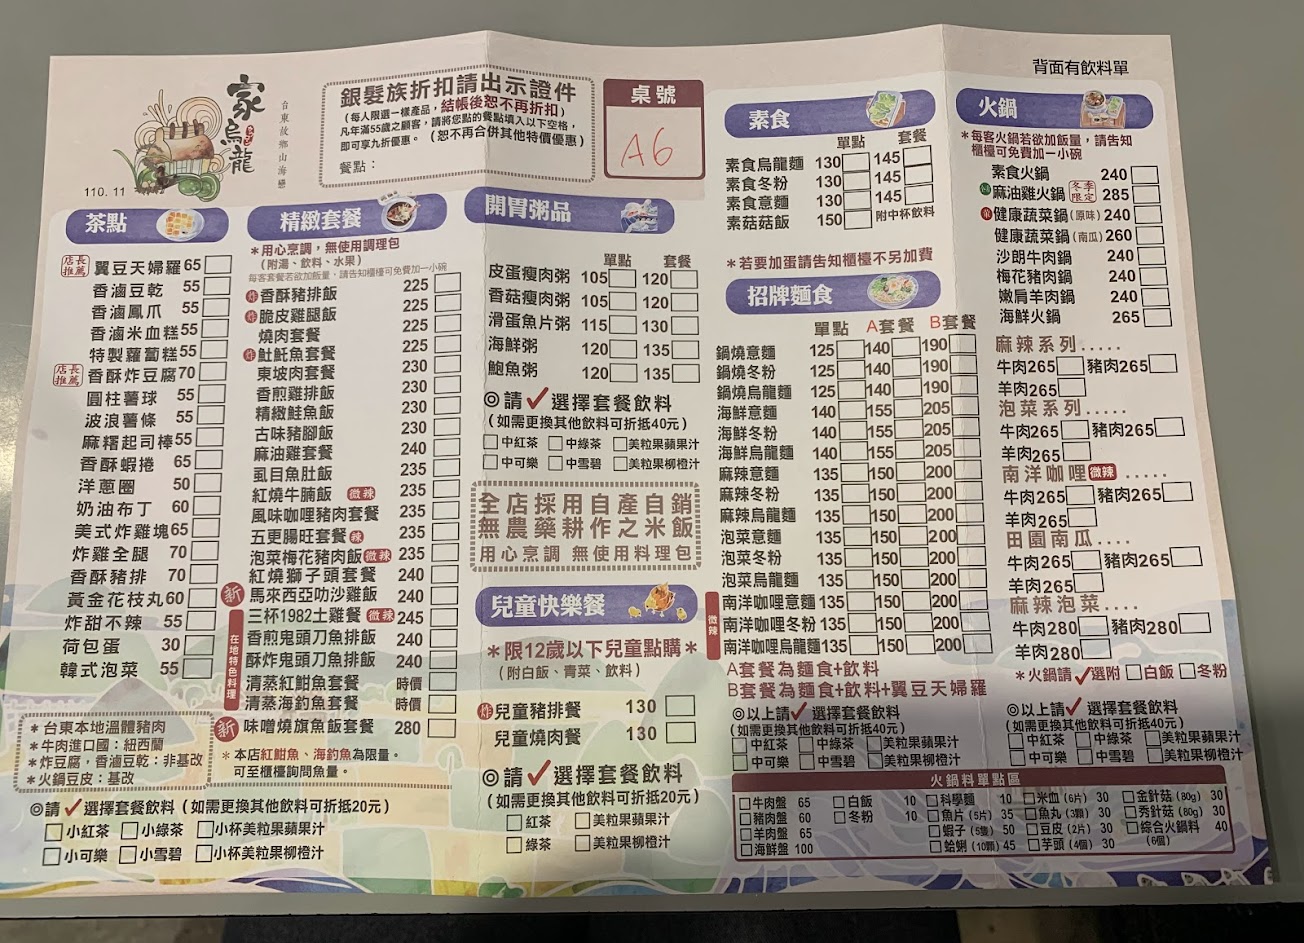 家烏龍
台東故鄉山海戀
110. 11
銀髮族折扣請出示證件
(每人限選一樣產品，結帳後恕不再折扣)
凡年滿55歲之顧客，請將您點的餐點填入以下空格，
即可享九折優惠。(恕不再合併其他特價優惠)
餐點：
桌號
A6
背面有飲料單
茶點
店長推薦 翼豆天婦羅 65
香滷豆乾 55
香滷鳳爪 55
香滷米血糕 55
特製蘿蔔糕 55
店長推薦 香酥炸豆腐 70
圓柱薯球 55
波浪薯條 55
麻糬起司棒 55
香酥蝦捲 65
洋蔥圈 50
奶油布丁 60
美式炸雞塊 65
炸雞全腿 70
香酥豬排 70
黃金花枝丸 60
炸甜不辣 55
荷包蛋 30
韓式泡菜 55
＊台東本地溫體豬肉
＊牛肉進口國：紐西蘭
＊炸豆腐，香滷豆乾：非基改
＊火鍋豆皮：基改
精緻套餐
＊用心烹調，無使用調理包
(附湯、飲料、水果)
每客套餐若欲加飯量，請告知櫃檯可免費加一小碗
炸 香酥豬排飯 225
炸 脆皮雞腿飯 225
燒肉套餐 225
炸 魠魠魚套餐 225
東坡肉套餐 230
香煎雞排飯 230
精緻鮭魚飯 230
古味豬腳飯 230
麻油雞套餐 240
虱目魚肚飯 235
紅燒牛腩飯 微辣 235
風味咖哩豬肉套餐 235
五更腸旺套餐 辣 235
泡菜梅花豬肉飯 微辣 235
紅燒獅子頭套餐 240
新 馬來西亞叻沙雞飯 240
在地特色料理
三杯1982土雞餐 微辣 245
香煎鬼頭刀魚排飯 240
酥炸鬼頭刀魚排飯 240
清蒸紅魽魚套餐 時價
清蒸海釣魚套餐 時價
新 味噌燒旗魚飯套餐 280
＊本店紅魽魚、海釣魚為限量。
可至櫃檯詢問魚量。
◎請✓選擇套餐飲料 (如需更換其他飲料可折抵20元)
□小紅茶 □小綠茶 □小杯美粒果蘋果汁
□小可樂 □小雪碧 □小杯美粒果柳橙汁
開胃粥品
單點 套餐
皮蛋瘦肉粥 105 120
香菇瘦肉粥 105 120
滑蛋魚片粥 115 130
海鮮粥 120 135
鮑魚粥 120 135
◎請✓選擇套餐飲料
(如需更換其他飲料可折抵40元)
□中紅茶 □中綠茶 □美粒果蘋果汁
□中可樂 □中雪碧 □美粒果柳橙汁
全店採用自產自銷
無農藥耕作之米飯
用心烹調 無使用料理包
兒童快樂餐
＊限12歲以下兒童點購＊
(附白飯、青菜、飲料)
炸 兒童豬排餐 130
兒童燒肉餐 130
◎請✓選擇套餐飲料
(如需更換其他飲料可折抵20元)
□紅茶 □美粒果蘋果汁
□綠茶 □美粒果柳橙汁
素食
單點 套餐
素食烏龍麵 130 145
素食冬粉 130 145
素食意麵 130 145
素菇菇飯 150 附中杯飲料
＊若要加蛋請告知櫃檯不另加費
招牌麵食
單點 A套餐 B套餐
鍋燒意麵 125 140 190
鍋燒冬粉 125 140 190
鍋燒烏龍麵 125 140 190
海鮮意麵 140 155 205
海鮮冬粉 140 155 205
海鮮烏龍麵 140 155 205
麻辣意麵 135 150 200
麻辣冬粉 135 150 200
麻辣烏龍麵 135 150 200
泡菜意麵 135 150 200
泡菜冬粉 135 150 200
泡菜烏龍麵 135 150 200
微辣
南洋咖哩意麵 135 150 200
南洋咖哩冬粉 135 150 200
南洋咖哩烏龍麵 135 150 200
A套餐為麵食+飲料
B套餐為麵食+飲料+翼豆天婦羅
◎以上請✓選擇套餐飲料
(如需更換其他飲料可折抵40元)
□中紅茶 □中綠茶 □美粒果蘋果汁
□中可樂 □中雪碧 □美粒果柳橙汁
火鍋
＊每客火鍋若欲加飯量，請告知
櫃檯可免費加一小碗
素食火鍋 240
麻油雞火鍋 冬季限定 285
健康蔬菜鍋(原味) 240
健康蔬菜鍋(南瓜) 260
沙朗牛肉鍋 240
梅花豬肉鍋 240
嫩肩羊肉鍋 240
海鮮火鍋 265
麻辣系列.....
牛肉265 豬肉265
羊肉265
泡菜系列.....
牛肉265 豬肉265
羊肉265
南洋咖哩 微辣 .....
牛肉265 豬肉265
羊肉265
田園南瓜....
牛肉265 豬肉265
羊肉265
麻辣泡菜....
牛肉280 豬肉280
羊肉280
＊火鍋請✓選附 □白飯 □冬粉
◎以上請✓選擇套餐飲料
(如需更換其他飲料可折抵40元)
□中紅茶 □中綠茶 □美粒果蘋果汁
□中可樂 □中雪碧 □美粒果柳橙汁
火鍋料單點區
□牛肉盤 65 □白飯 10 □科學麵 10 □米血(6片) 30 □金針菇(80g) 30
□豬肉盤 60 □冬粉 10 □魚片(5片) 35 □魚丸(3顆) 30 □秀針菇(80g) 30
□羊肉盤 65 □蝦子(5隻) 50 □豆皮(2片) 30 □綜合火鍋料 40
□海鮮盤 100 □蛤蜊(10顆) 45 □芋頭(4個) 30 (6個)